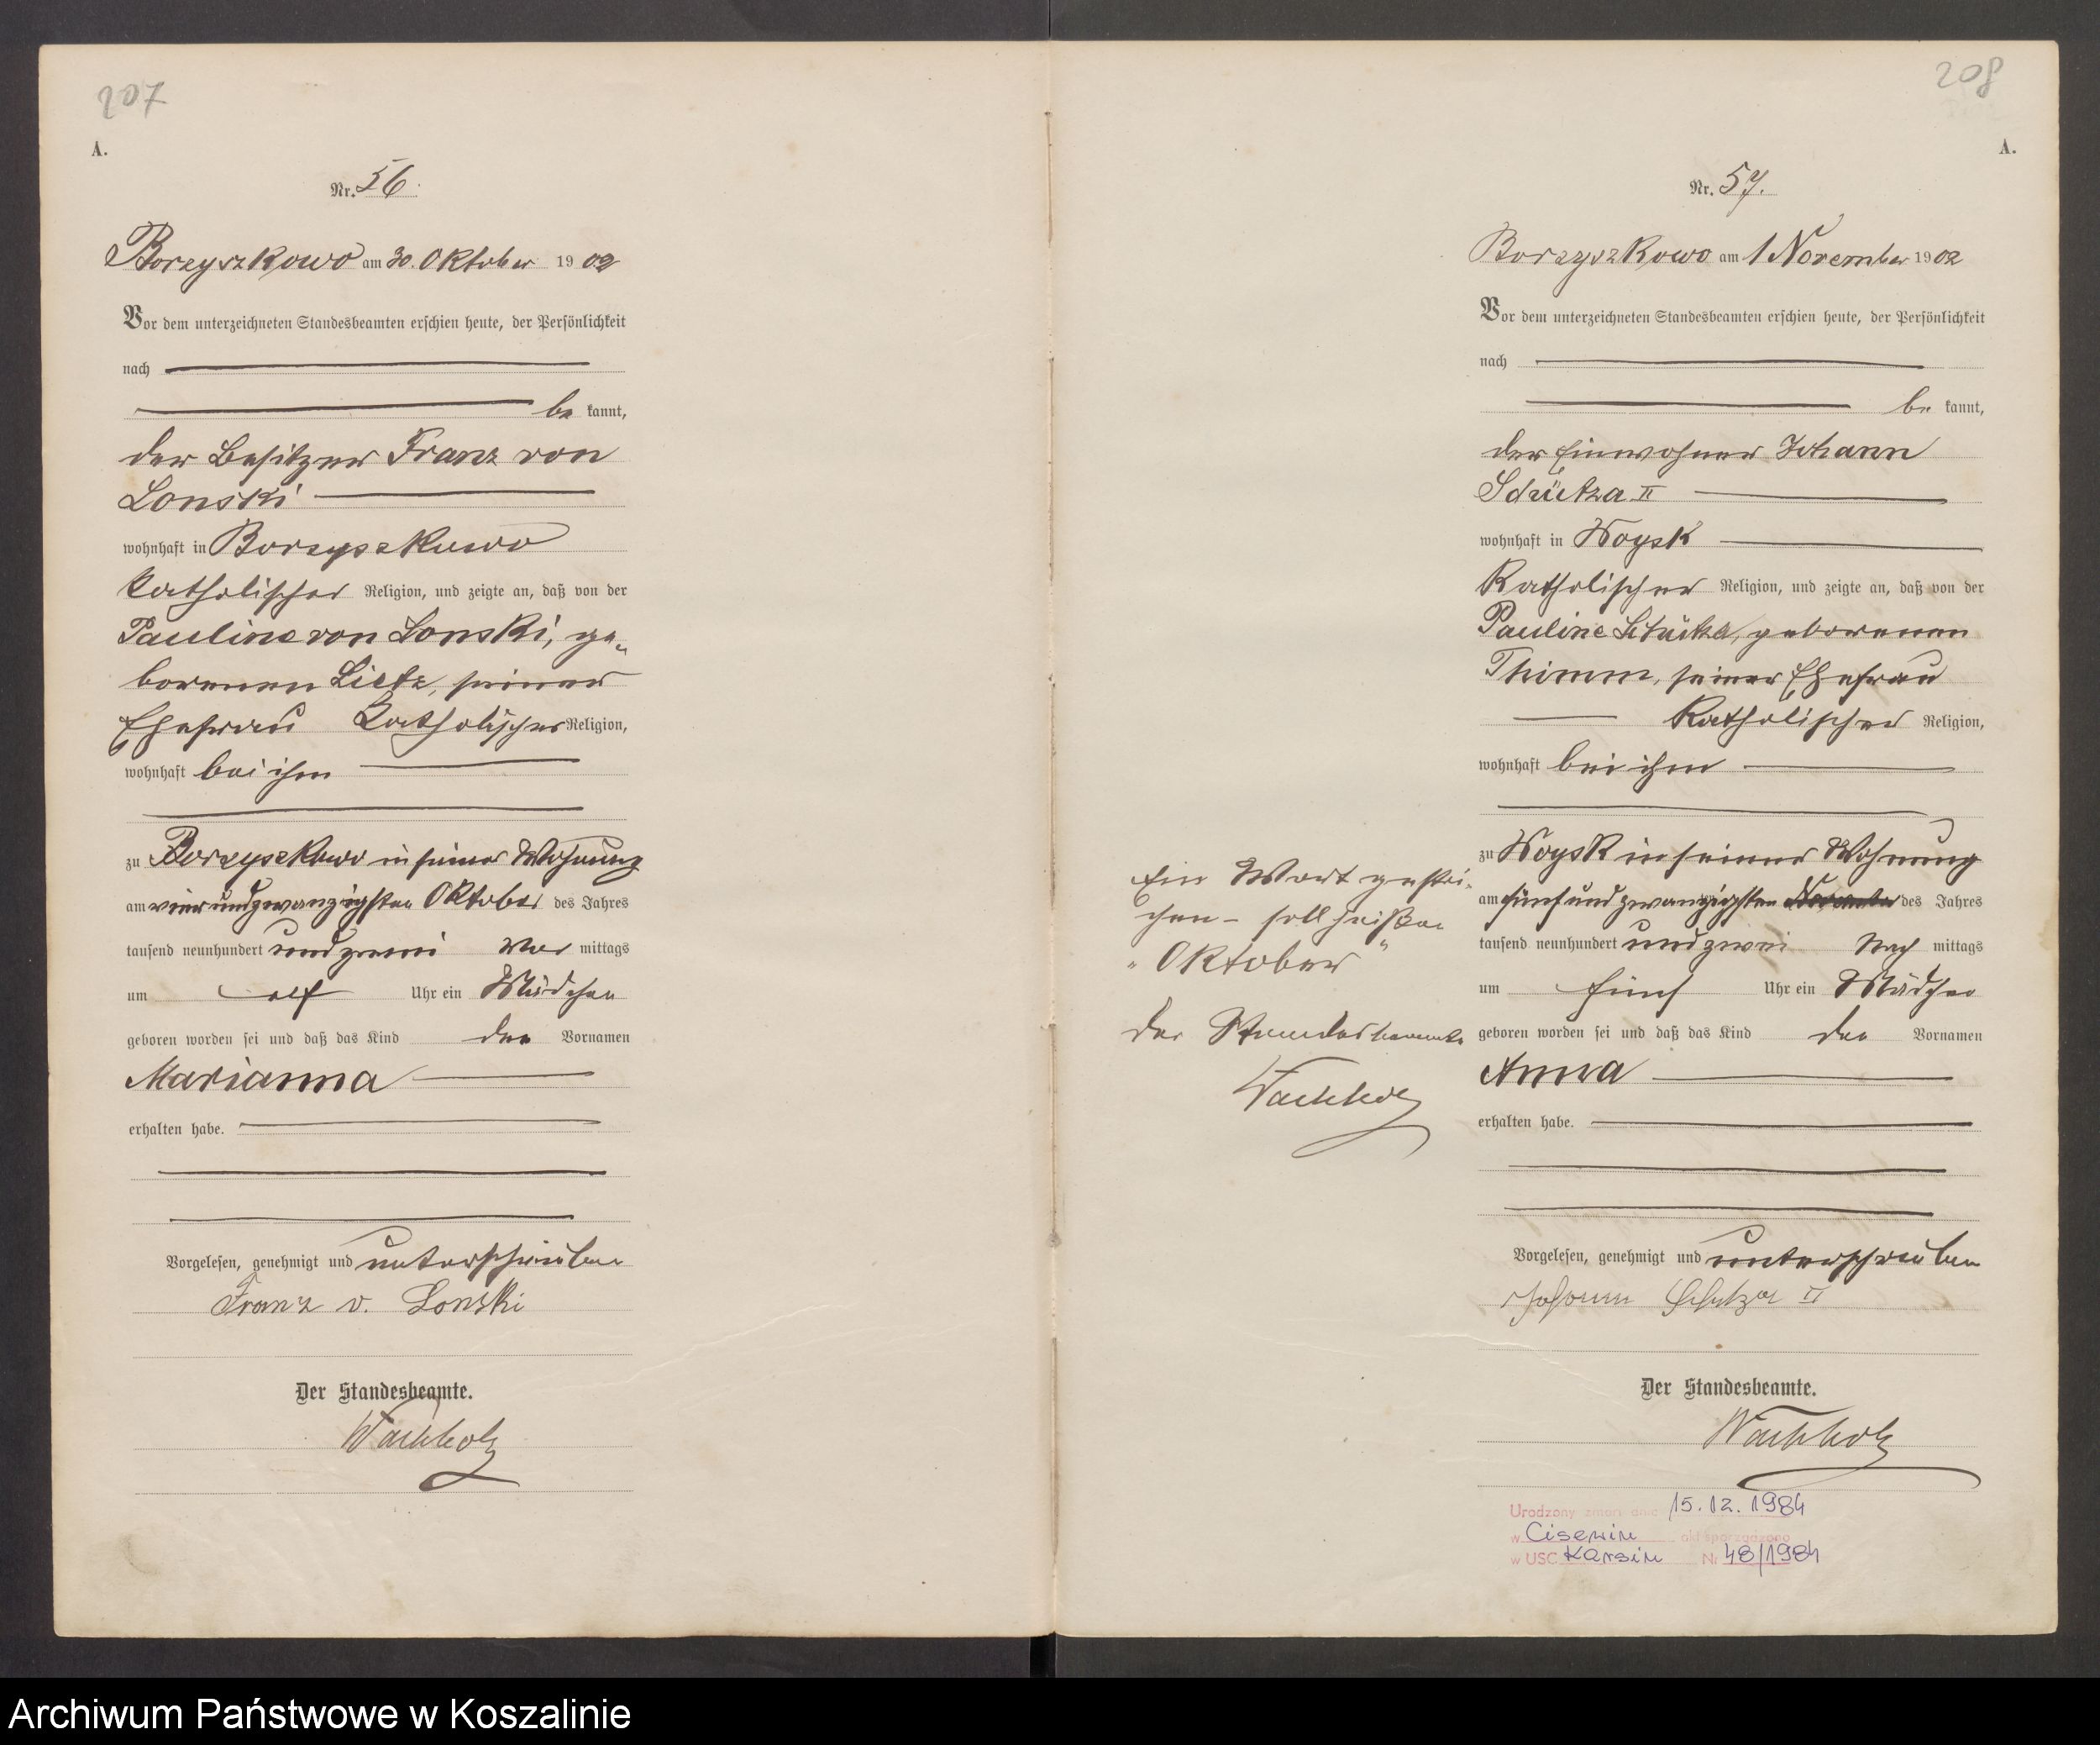 207
A.
Nr. 56.
Borzyszkowo am 30. Oktober 1902
Vor dem unterzeichneten Standesbeamten erschien heute, der Persönlichkeit
nach
be kannt,
der Besitzer Franz von
Lonski
wohnhaft in Borzyszkowo
katholischer Religion, und zeigte an, daß von der
Pauline von Lonski, ge-
borenen Lietz, seiner
Ehefrau katholischer Religion,
wohnhaft bei ihm
zu Borzyszkowo in seiner Wohnung
am vierundzwanzigsten Oktober des Jahres
tausend neunhundert und zwei Vor mittags
um elf Uhr ein Mädchen
geboren worden sei und daß das Kind den Vornamen
Marianna
erhalten habe.
Vorgelesen, genehmigt und unterschrieben
Franz v. Lonski
Der Standesbeamte.
Wachholz
208
A.
Nr. 57.
Borzyszkowo am 1 November 1902
Vor dem unterzeichneten Standesbeamten erschien heute, der Persönlichkeit
nach
be kannt,
der Einwohner Johann
II
wohnhaft in Woysk
Katholischer Religion, und zeigte an, daß von der
Pauline geborenen
Thimm, seiner Ehefrau
Katholischer Religion,
wohnhaft bei ihm
zu Woysk in seiner Wohnung
am fünfundzwanzigsten November des Jahres
tausend neunhundert und zwei Nach mittags
um fünf Uhr ein Mädchen
geboren worden sei und daß das Kind den Vornamen
Anna
erhalten habe.
Ein Wort gestri-
chen - soll heißen
"Oktober"
Der Standesbeamte
Wachholz
Vorgelesen, genehmigt und unterschrieben
Johann II
Der Standesbeamte.
Wachholz
Urodzony zmarł dnia 15.12.1984
w Cisewiu akt sporządzono
w USC Karsin Nr 48/1984
Archiwum Państwowe w Koszalinie